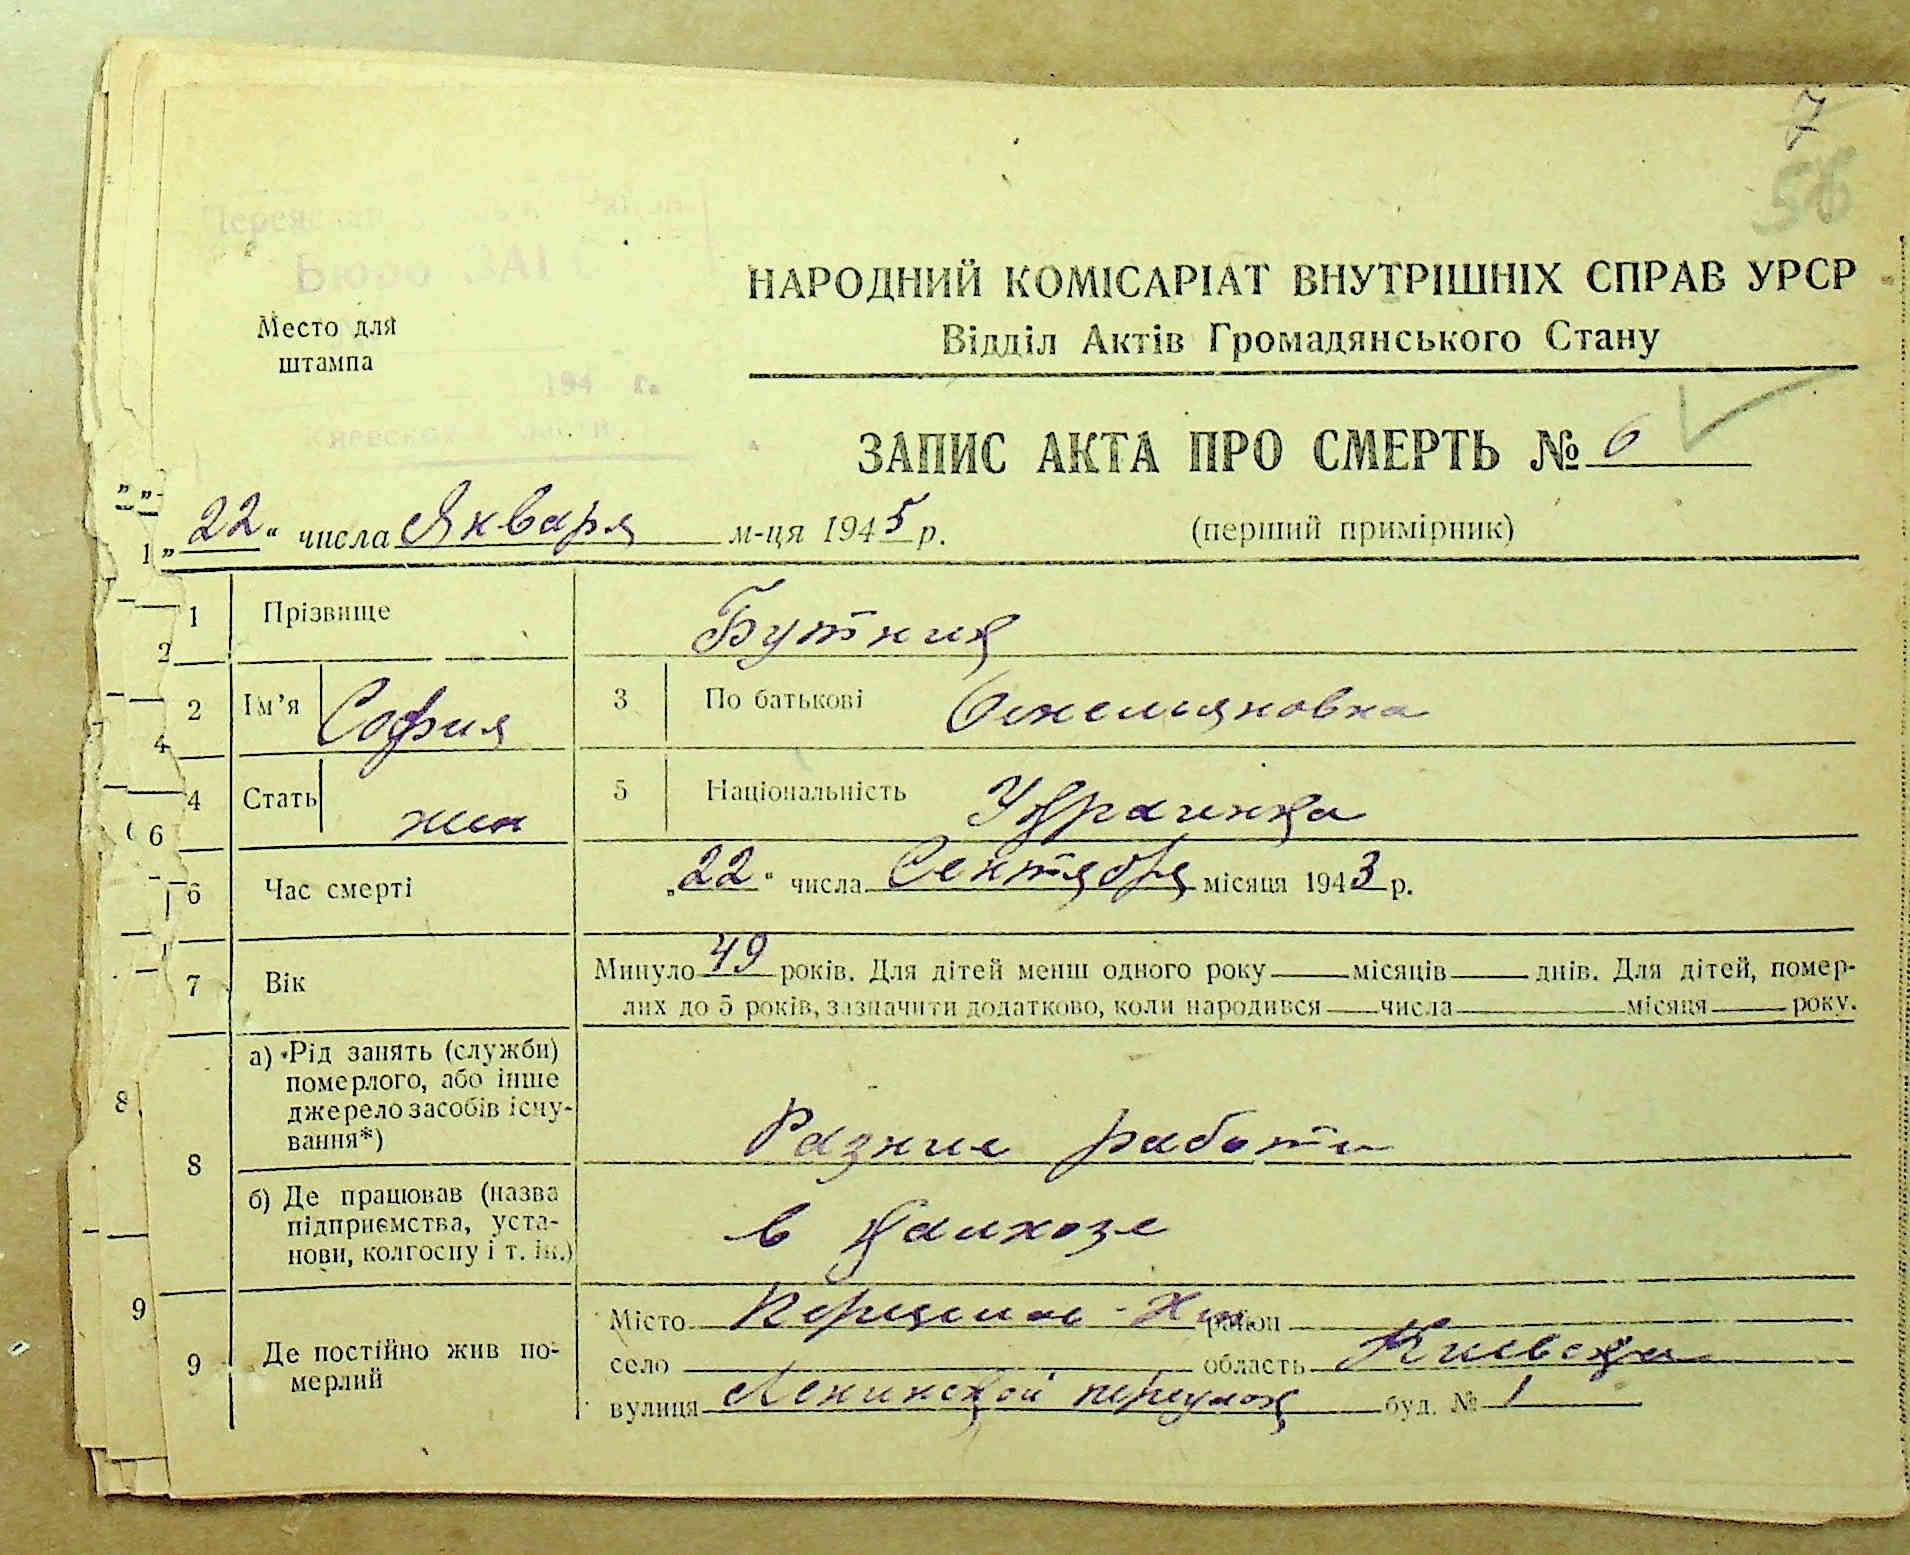 7
56
Бюро ЗАГС
НАРОДНИЙ КОМІСАРІАТ ВНУТРІШНІХ СПРАВ УРСР
Відділ Актів Громадянського Стану
Место для
штампа
194 г.
ЗАПИС АКТА ПРО СМЕРТЬ № 6
„22“ числа Января м-ця 1945 р. (перший примірник)
1 Прізвище Бутник
2 Ім’я София 3 По батькові Омельяновна
4 Стать жен 5 Національність Украинка
6 Час смерті „22“ числа Сентября місяця 1943 р.
7 Вік Минуло 49 років. Для дітей менш одного року місяців днів. Для дітей, помер-
лих до 5 років, зазначити додатково, коли народився числа місяця року.
8 а) Рід занять (служби)
померлого, або інше
джерело засобів існу-
вання*)
Разние работи
б) Де працював (назва
підприємства, уста-
нови, колгоспу і т. ін.)
в
9 Де постійно жив по-
мерлий
Місто Переяслав-Хм район
село область Киевская
вулиця Ленинской переулок буд. № 1